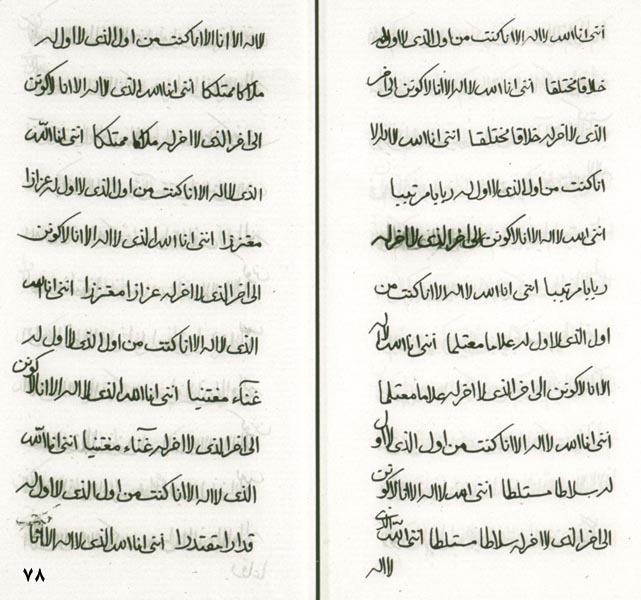 انني انا الله لا اله الا انا كنت من اول الذي لا اول له
خلاقا مختلقا انني انا الله لا اله الا انا لاكونن الى اخر
الذي لا اخر له خلاقا مختلقا انني انا الله لا اله الا
انا كنت من اول الذي لا اول له ربابا مرتببا
انني انا الله لا اله الا انا لاكونن الى اخر الذي لا اخر له
ربابا مرتببا انني انا الله لا اله الا انا كنت من
اول الذي لا اول له علاما معتلما انني انا الله لا اله
الا انا لاكونن الى اخر الذي لا اخر له علاما معتلما
انني انا الله لا اله الا انا كنت من اول الذي لا اول
له سلاطا مستلطا انني انا الله لا اله الا انا لاكونن
الى اخر الذي لا اخر له سلاطا مستلطا انني انا الله الذي
لا اله
لا اله الا انا الا انا كنت من اول الذي لا اول له
ملاكا ممتلكا انني انا الله الذي لا اله الا انا لاكونن
الى اخر الذي لا اخر له ملاكا ممتلكا انني انا الله
الذي لا اله الا انا كنت من اول الذي لا اول له عزازا
معتززا انني انا الله الذي لا اله الا انا لاكونن
الى اخر الذي لا اخر له عزازا معتززا انني انا الله
الذي لا اله الا انا كنت من اول الذي لا اول له
غناء مغتنيا انني انا الله الذي لا اله الا انا لاكونن
الى اخر الذي لا اخر له غناء مغتنيا انني انا الله
الذي لا اله الا انا كنت من اول الذي لا اول له
قدارا مقتدرا انني انا الله الذي لا اله الا انا
٧٨